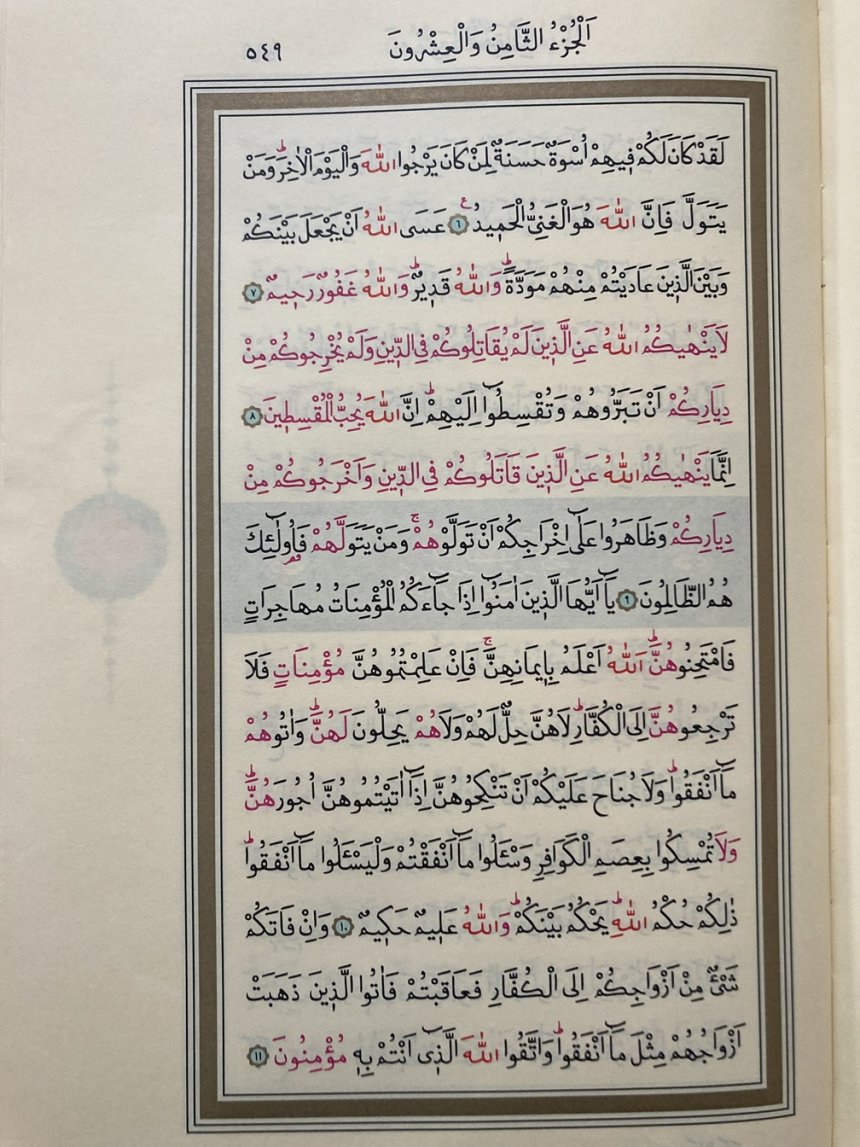 اَلْجُزْءُ الثَّامِنُ وَالْعِشْرُونَ
٥٤٩
لَقَدْ كَانَ لَكُمْ ف۪يهِمْ اُسْوَةٌ حَسَنَةٌ لِمَنْ كَانَ يَرْجُوا اللّٰهَ وَالْيَوْمَ الْاٰخِرَۜ وَمَنْ
يَتَوَلَّ فَاِنَّ اللّٰهَ هُوَ الْغَنِيُّ الْحَم۪يدُ۟ ﴿٦﴾ عَسَى اللّٰهُ اَنْ يَجْعَلَ بَيْنَكُمْ
وَبَيْنَ الَّذ۪ينَ عَادَيْتُمْ مِنْهُمْ مَوَدَّةًۜ وَاللّٰهُ قَد۪يرٌۜ وَاللّٰهُ غَفُورٌ رَح۪يمٌ ﴿٧﴾
لَا يَنْهٰيكُمُ اللّٰهُ عَنِ الَّذ۪ينَ لَمْ يُقَاتِلُوكُمْ فِي الدّ۪ينِ وَلَمْ يُخْرِجُوكُمْ مِنْ
دِيَارِكُمْ اَنْ تَبَرُّوهُمْ وَتُقْسِطُٓوا اِلَيْهِمْۜ اِنَّ اللّٰهَ يُحِبُّ الْمُقْسِط۪ينَ ﴿٨﴾
اِنَّمَا يَنْهٰيكُمُ اللّٰهُ عَنِ الَّذ۪ينَ قَاتَلُوكُمْ فِي الدّ۪ينِ وَاَخْرَجُوكُمْ مِنْ
دِيَارِكُمْ وَظَاهَرُوا عَلٰٓى اِخْرَاجِكُمْ اَنْ تَوَلَّوْهُمْۚ وَمَنْ يَتَوَلَّهُمْ فَاُو۬لٰٓئِكَ
هُمُ الظَّالِمُونَ ﴿٩﴾ يَٓا اَيُّهَا الَّذ۪ينَ اٰمَنُٓوا اِذَا جَٓاءَكُمُ الْمُؤْمِنَاتُ مُهَاجِرَاتٍ
فَامْتَحِنُوهُنَّۜ اَللّٰهُ اَعْلَمُ بِا۪يمَانِهِنَّۚ فَاِنْ عَلِمْتُمُوهُنَّ مُؤْمِنَاتٍ فَلَا
تَرْجِعُوهُنَّ اِلَى الْكُفَّارِۜ لَا هُنَّ حِلٌّ لَهُمْ وَلَا هُمْ يَحِلُّونَ لَهُنَّۜ وَاٰتُوهُمْ
مَٓا اَنْفَقُواۜ وَلَا جُنَاحَ عَلَيْكُمْ اَنْ تَنْكِحُوهُنَّ اِذَٓا اٰتَيْتُمُوهُنَّ اُجُورَهُنَّۜ
وَلَا تُمْسِكُوا بِعِصَمِ الْكَوَافِرِ وَسْـَٔلُوا مَٓا اَنْفَقْتُمْ وَلْيَسْـَٔلُوا مَٓا اَنْفَقُواۜ
ذٰلِكُمْ حُكْمُ اللّٰهِۜ يَحْكُمُ بَيْنَكُمْۜ وَاللّٰهُ عَل۪يمٌ حَك۪يمٌ ﴿١٠﴾ وَاِنْ فَاتَكُمْ
شَيْءٌ مِنْ اَزْوَاجِكُمْ اِلَى الْكُفَّارِ فَعَاقَبْتُمْ فَاٰتُوا الَّذ۪ينَ ذَهَبَتْ
اَزْوَاجُهُمْ مِثْلَ مَٓا اَنْفَقُواۜ وَاتَّقُوا اللّٰهَ الَّذ۪ٓي اَنْتُمْ بِه۪ مُؤْمِنُونَ ﴿١١﴾